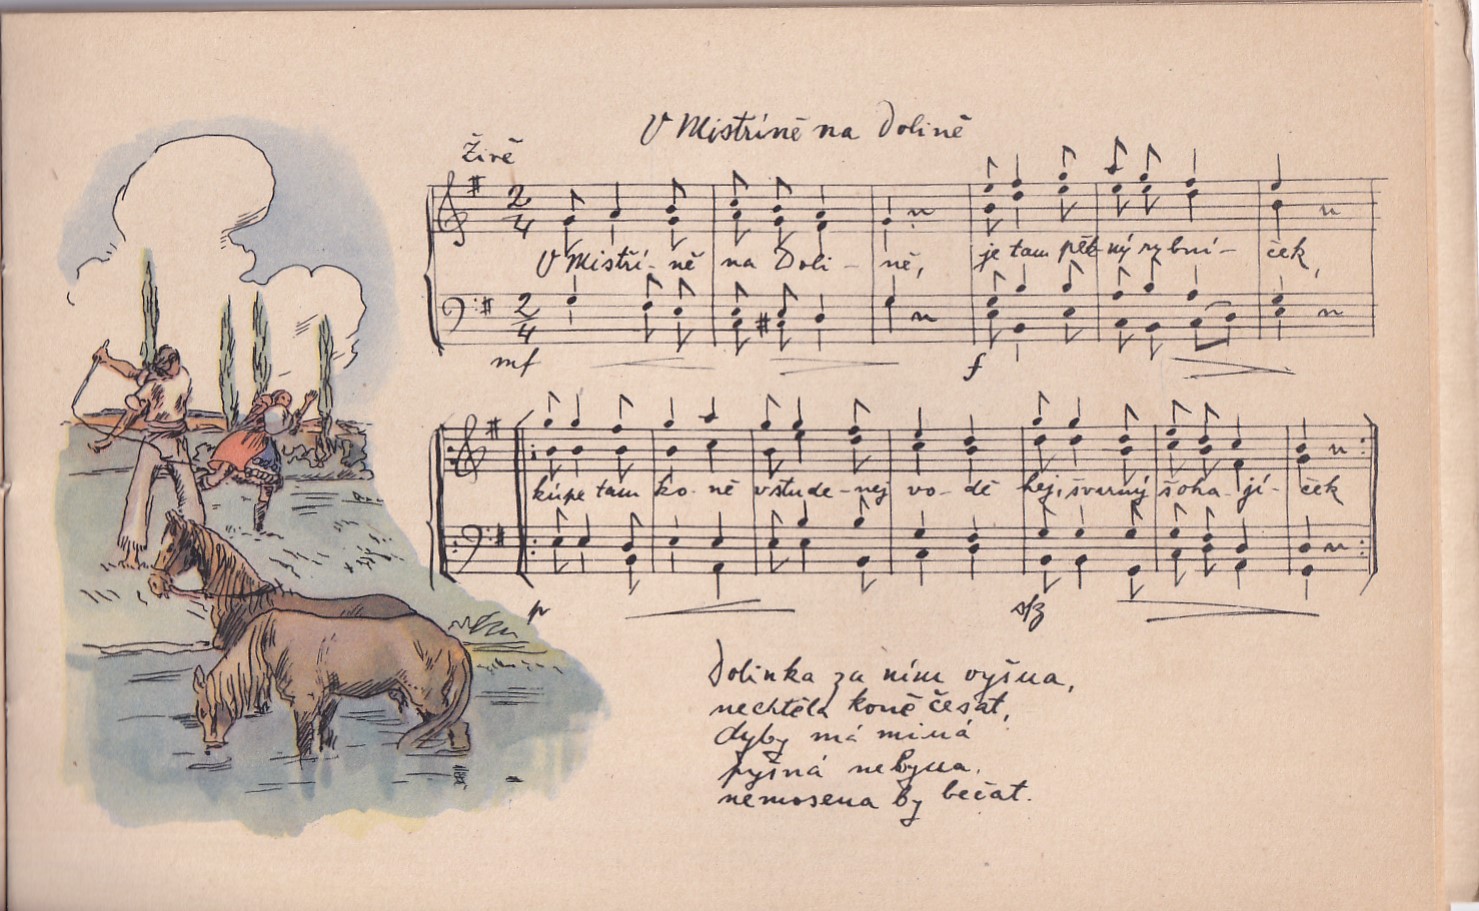 V Mistříně na Dolině
Živě
2 4
V Mistří- ně na Doli- ně, je tam pěk- ný rybní- ček,
2 4
mf f
kúpe tam ko- ně v stude- nej vo- dě hej, švarný šoha- jí- ček
p sfz
Dolinka za ním vyšua,
nechtěla koně česat,
dyby má miuá
pyšná nebyua,
nemoseua by bečat.